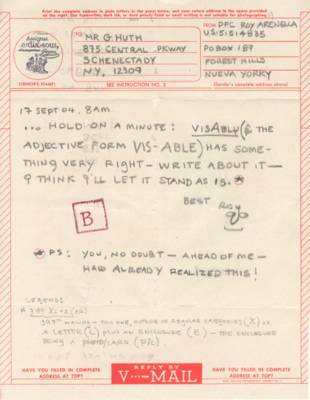 Print the complete address in plain letters in the panel below, and your return address in the space provided on the right. Use typewriter, dark ink, or dark pencil. Faint or small writing is not suitable for photographing.
TO:
MR G. HUTH
875 CENTRAL PKWAY
SCHENECTADY
N.Y. 12309
FROM
PFC ROY ARENELLA
US 51514835
PO BOX 187
FOREST HILLS
NUEVA YORKY
(CENSOR'S STAMP)
SEE INSTRUCTION NO. 2
(Sender's complete address above)
17 SEPT 04. 8AM
... HOLD ON A MINUTE: VISABLY (& THE
ADJECTIVE FORM VIS-ABLE) HAS SOME-
THING VERY RIGHT – WRITE ABOUT IT –
I THINK I'LL LET IT STAND AS IS.*
BEST
ROY
B
* PS: YOU, NO DOUBT – AHEAD OF ME –
HAD ALREADY REALIZED THIS!
LEGEND:
A LETTER (L) PLUS AN ENCLOSURE (E) – THE ENCLOSURE
BEING A PHOTO/CARD (P/C)
HAVE YOU FILLED IN COMPLETE
ADDRESS AT TOP?
REPLY BY
V···–MAIL
HAVE YOU FILLED IN COMPLETE
ADDRESS AT TOP?